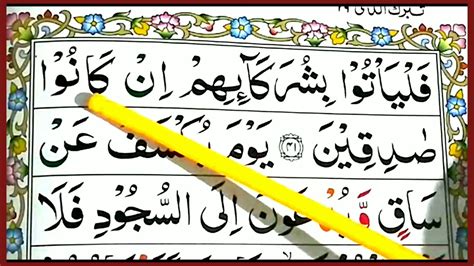 تبرك الذى ٢٩
فَلْيَاْتُوْا بِشُرَكَآىِٕهِمْ اِنْ كَانُوْا
صٰدِقِيْنَ ۝٤١ يَوْمَ يُكْشَفُ عَنْ
سَاقٍ وَّيُدْعَوْنَ اِلَى السُّجُوْدِ فَلَا